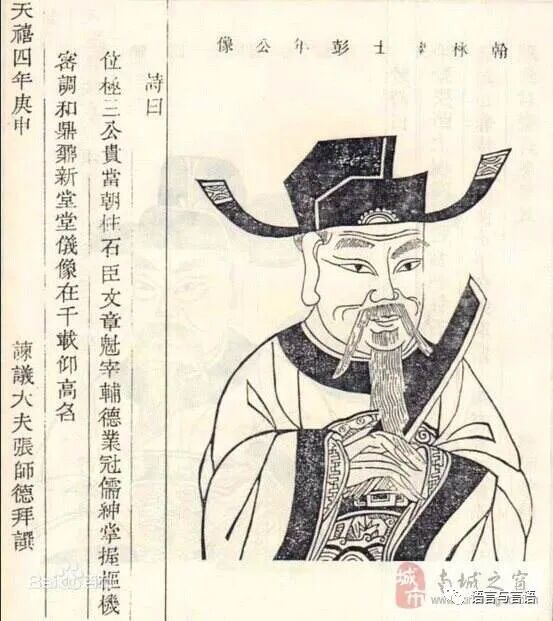 翰林士彭年公像
詩曰
位極三公貴當朝柱石臣文章魁宰輔德業冠儒紳掌握樞機
密調和鼎鼐新堂堂儀像在千載仰高名
天禧四年庚申 諫議大夫張師德拜譔
Bai百科
城市
南城之窗
语言与言语